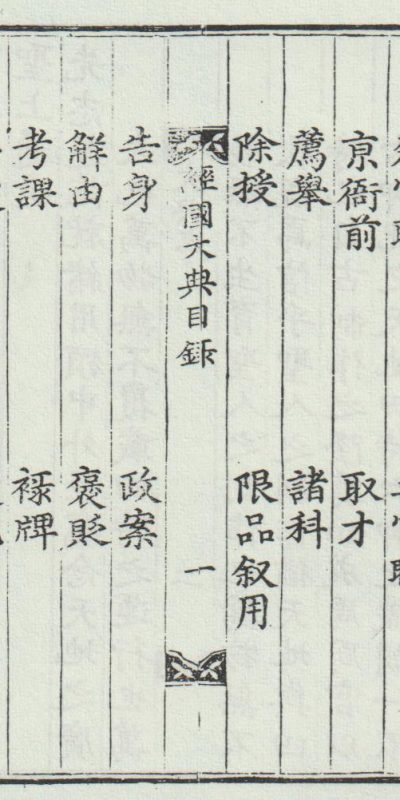 京衙前 取才
薦擧 諸科
除授 限品叙用
經國大典目録 一
告身 政案
解由 褒貶
考課 祿牌